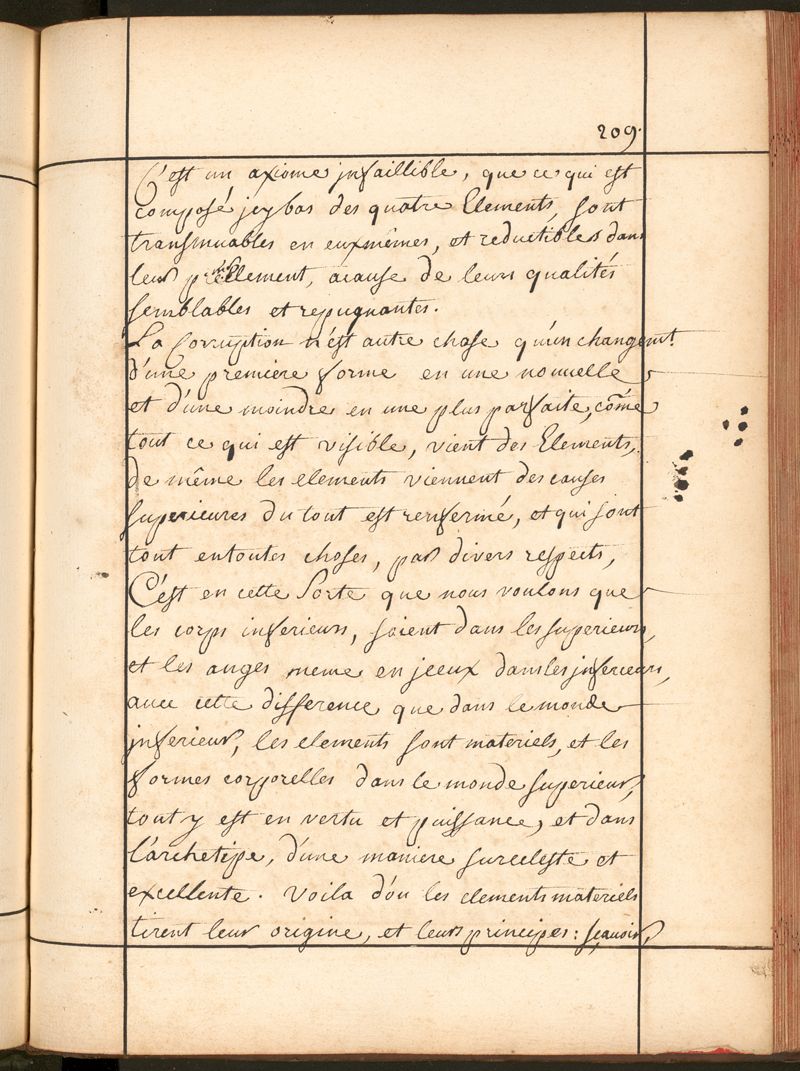 209.
C'est un axiome jnfaillible, que ce qui est
composé jcy bas des quatre Elements, sont
transmuables en eux mêmes, et reductibles dans
leur pr.er Ellement, acause de leurs qualités
semblables et repugnantes.
La Corruption n'est autre chose qu'un changemt.
d'une premiere forme en une nouuelle
et d'une moindre en une plus parfaite, côme
tout ce qui est visible, vient des Elements,
de même les elements viennent des causes
superieures du tout est renfermé, et qui sont
tout en toutes choses, par divers respects,
C'est en cette sorte que nous voulons que
les corps inferieurs, soient dans les superieurs,
et les anges meme en jceux dans les jnferieurs,
auec cette difference que dans le monde
jnferieur, les elements sont materiels, et les
formes corporelles dans le monde superieur,
tout y est en vertu et puissance, et dans
l'archetipe, d'une maniere surceleste et
excellente. Voila d'ou les elements materiels
tirent leur origine, et leurs principes: sçauoir,